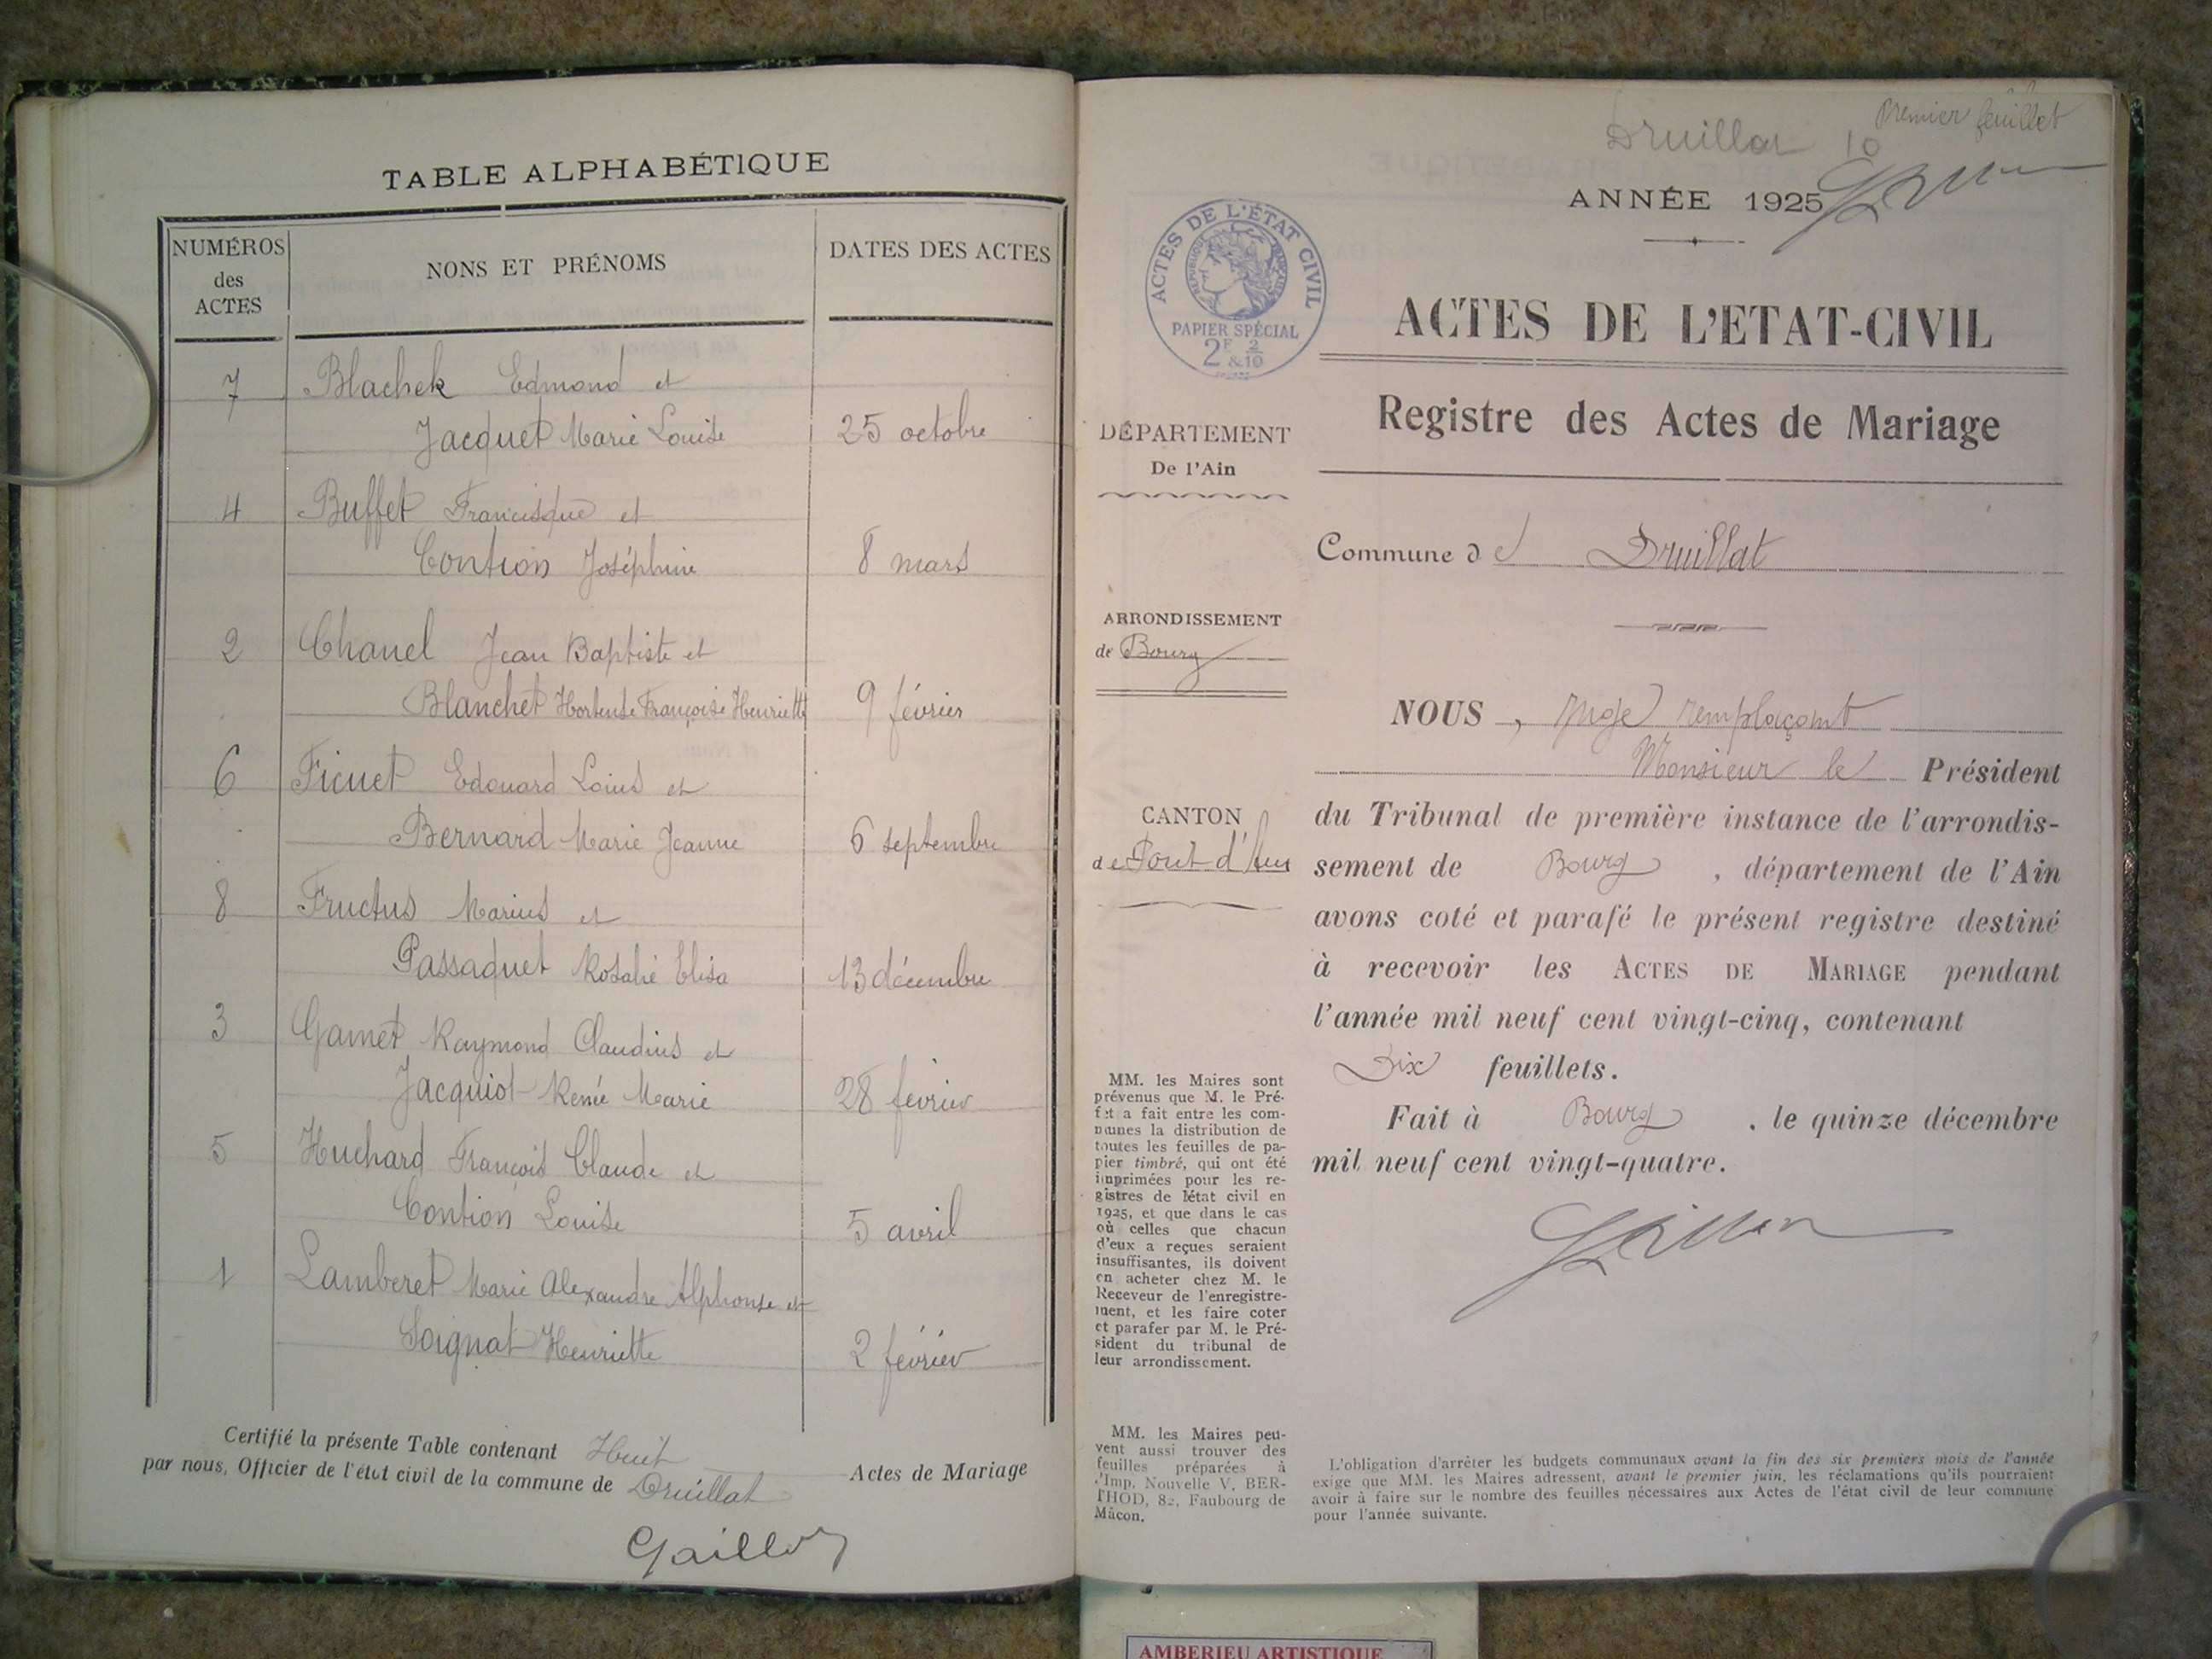 TABLE ALPHABÉTIQUE
NUMÉROS des ACTES
NONS ET PRÉNOMS
DATES DES ACTES
7 Blachek Edmond et
Jacquet Marie Louise 25 octobre
4 Buffet Francisque et
Contion Joséphine 8 mars
2 Chanel Jean Baptiste et
Blanchet Hortense Françoise Henriette 9 février
6 Ficuet Edouard Loius et
Bernard Marie Jeanne 6 septembre
8 Fructus Marius et
Passaquet Rosalie Elisa 13 décembre
3 Gamet Raymond Claudius et
Jacquiot Renée Marie 28 février
5 Huchard François Claude et
Contion Louise 5 avril
1 Lamberet Marie Alexandre Alphonse et
Soignat Henriette 2 février
Certifié la présente Table contenant Huit Actes de Mariage
par nous, Officier de l'état civil de la commune de Druillat
Druillat 10
Premier feuillet
ANNÉE 1925
ACTES DE L'ÉTAT CIVIL
RÉPUBLIQUE FRANÇAISE
PAPIER SPÉCIAL
2F & 2/10
ACTES DE L'ETAT-CIVIL
Registre des Actes de Mariage
DÉPARTEMENT
De l'Ain
Commune de Druillat
ARRONDISSEMENT
de Bourg
CANTON
de Pont d'Ain
NOUS, Juge remplaçant
Monsieur le Président
du Tribunal de première instance de l'arrondis-
sement de Bourg, département de l'Ain
avons coté et parafé le présent registre destiné
à recevoir les ACTES DE MARIAGE pendant
l'année mil neuf cent vingt-cinq, contenant
Dix feuillets.
Fait à Bourg, le quinze décembre
mil neuf cent vingt-quatre.
MM. les Maires sont
prévenus que M. le Pré-
fet a fait entre les com-
munes la distribution de
toutes les feuilles de pa-
pier timbré, qui ont été
imprimées pour les re-
gistres de létat civil en
1925, et que dans le cas
où celles que chacun
d'eux a reçues seraient
insuffisantes, ils doivent
en acheter chez M. le
Receveur de l'enregistre-
ment, et les faire coter
et parafer par M. le Pré-
sident du tribunal de
leur arrondissement.
MM. les Maires peu-
vent aussi trouver des
feuilles préparées à
l'Imp. Nouvelle V. BER-
THOD, 82, Faubourg de
Mâcon.
L'obligation d'arrêter les budgets communaux avant la fin des six premiers mois de l'année
exige que MM. les Maires adressent, avant le premier juin, les réclamations qu'ils pourraient
avoir à faire sur le nombre des feuilles nécessaires aux Actes de l'état civil de leur commune
pour l'année suivante.
AMBERIEU ARTISTIQUE